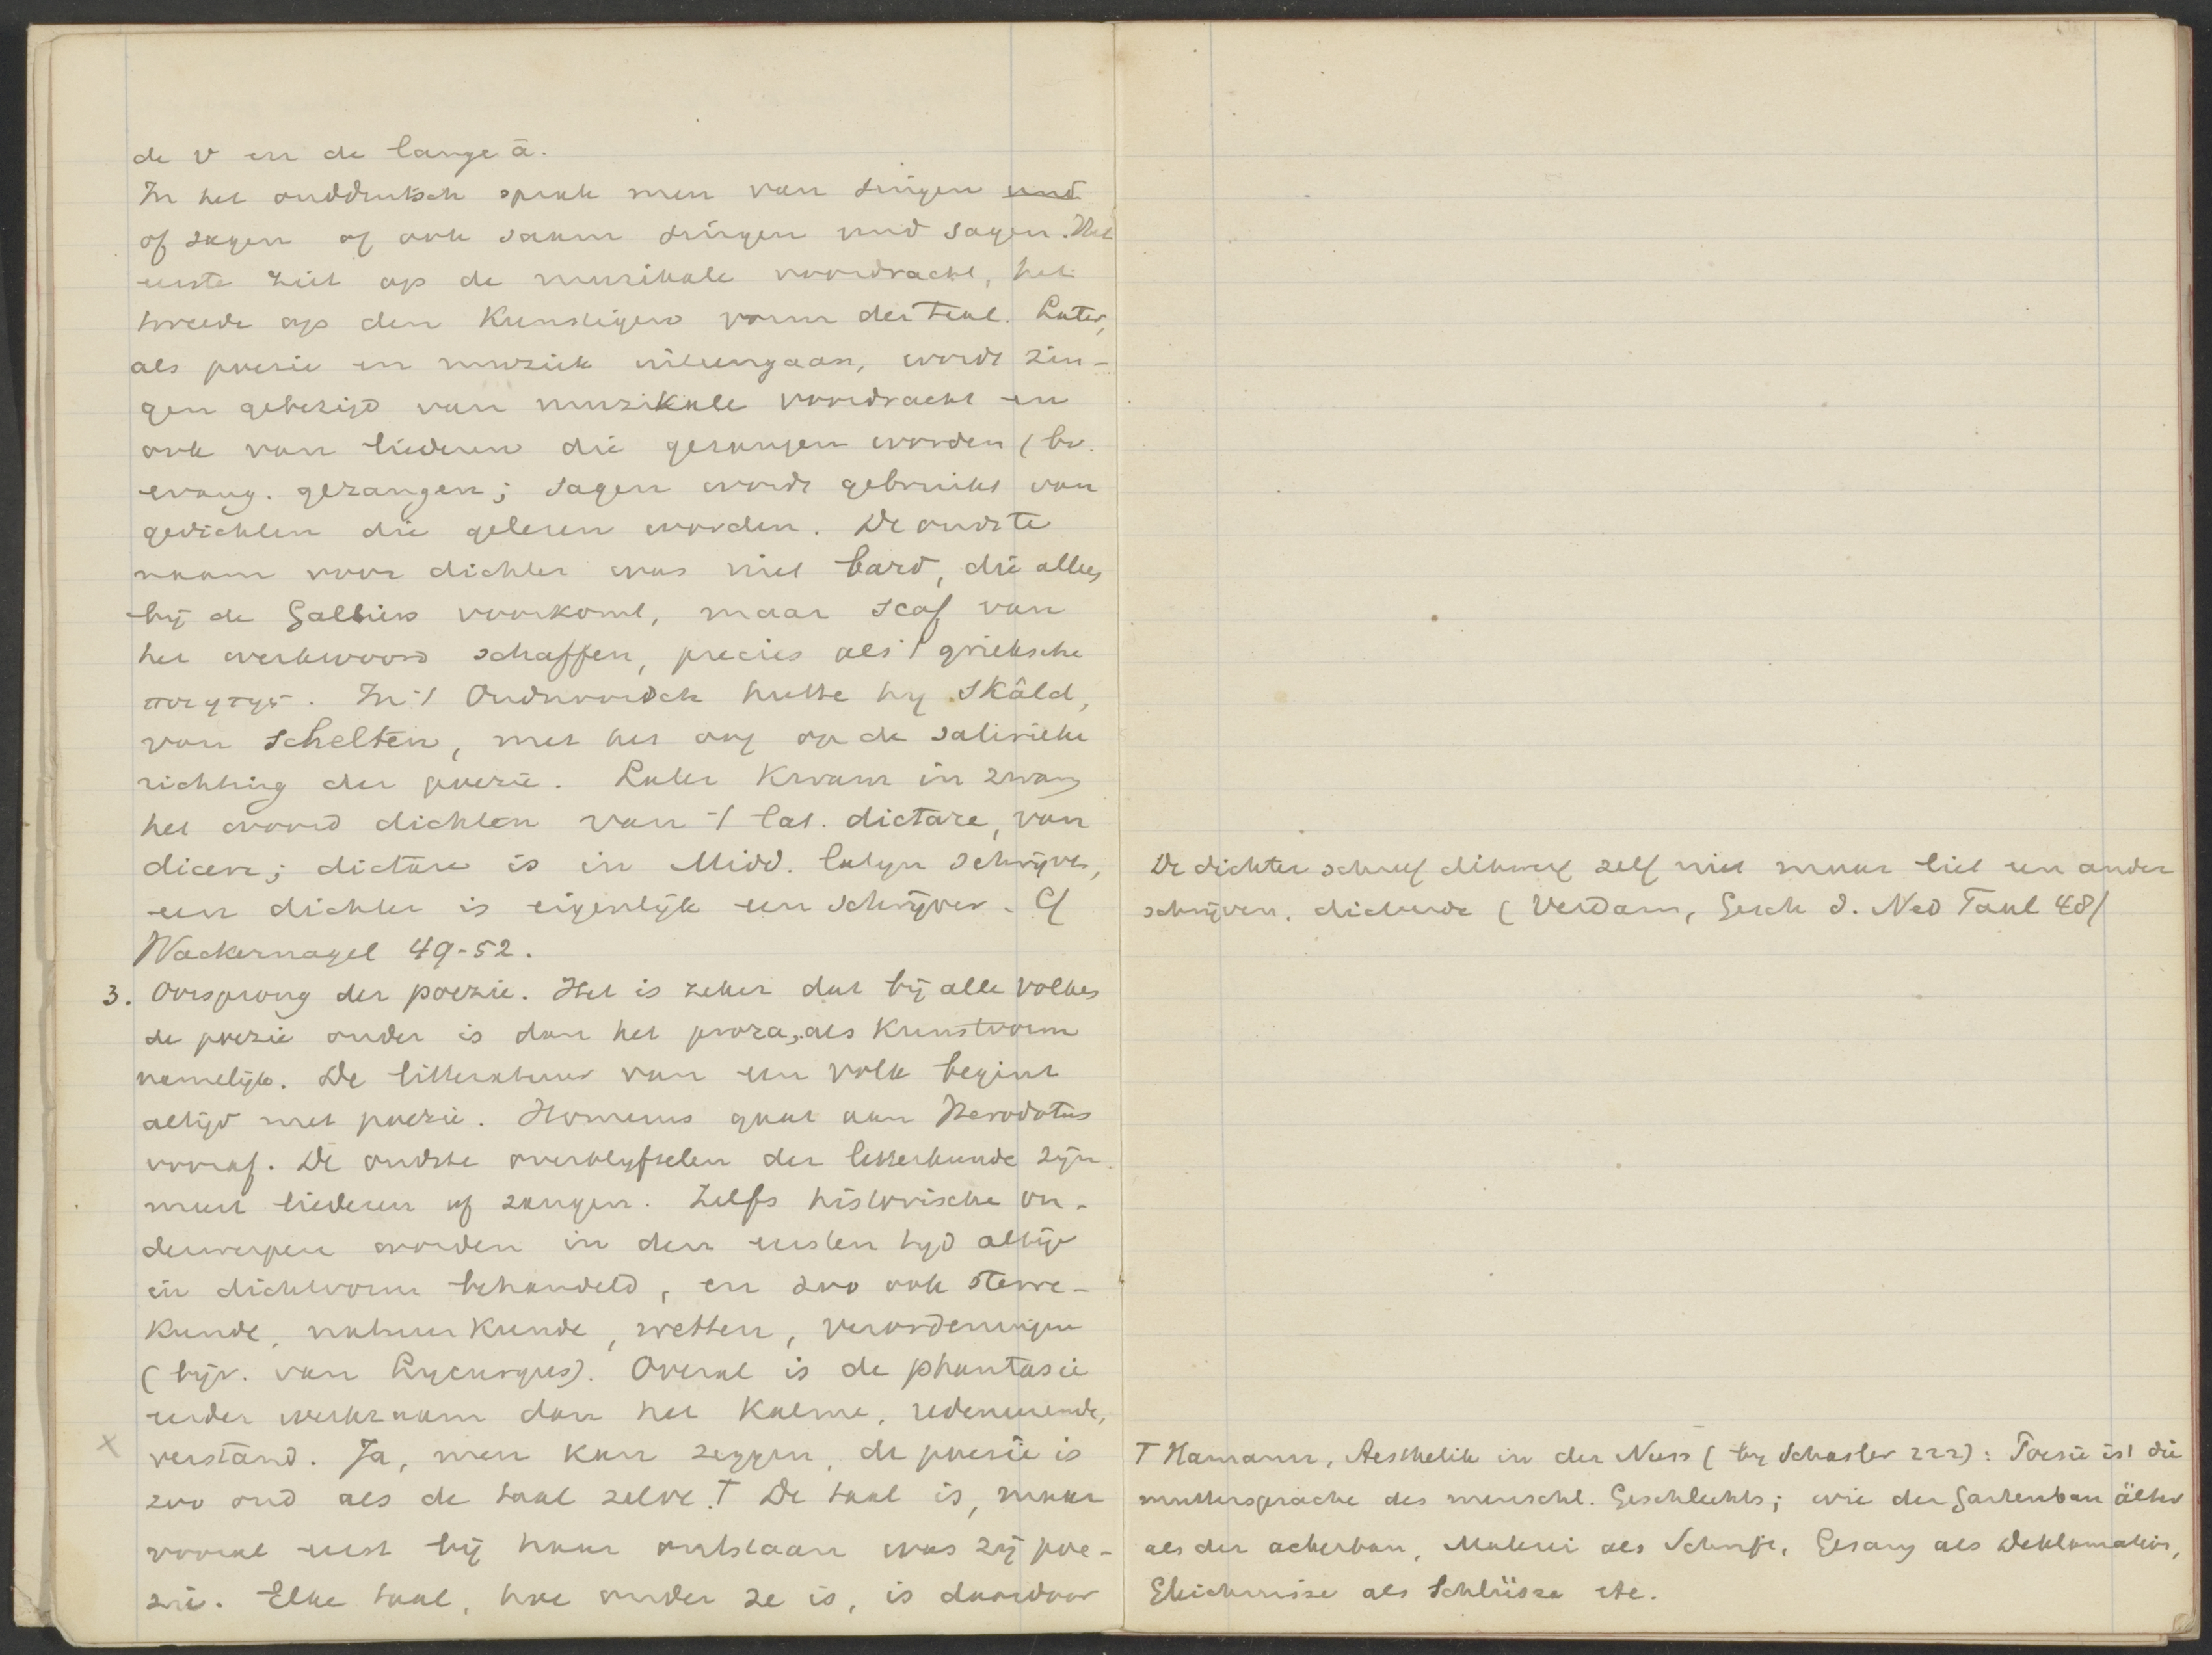 de v en de lange ā.
In het ouddeutsch sprak men van singen und
of sagen of ook saam singen und sagen. Het
eerste ziet op de muzikale voordracht, het
tweede op den Kunstigen vorm der taal. Later,
als poesie en muziek uiteengaan, wordt zin-
gen gebezigd van muzikale voordracht en
ook van liederen die gezongen worden (bv.
evang. gezangen; sagen wordt gebruikt van
gedichten die gelezen worden. De oudste
naam voor dichter was niet bard, die alleen
bij de Galliërs voorkomt, maar scof van
het werkwoord schaffen, precies als 't grieksche
ποιητης. In 't Oudnoordsch heette hij Skâld,
van schelten, met het oog op de satirieke
richting der poezie. Later kwam in zwang
het woord dichten van 't lat. dictare, van
dicere; dictare is in Midd. latyn schrijven,
een dichter is eigenlijk een schrijver. Cf
Wackernagel 49-52.
3. Oorsprong der poezie. Het is zeker dat bij alle volken
de poezie ouder is dan het proza, als Kunstvorm
namelijk. De litteratuur van een volk begint
altijd met poezie. Homerus gaat aan Herodotus
vooraf. De oudste overblyfselen der letterkunde zijn
meest liederen of zangen. Zelfs historische on-
derwerpen worden in den eersten tyd altijd
in dichtvorm behandeld, en zoo ook sterre-
kunde, natuurkunde, wetten, verordeningen
(bijv. van Lycurgus). Overal is de phantasie
eerder werkzaam dan het Kalme, redeneerende,
verstand. Ja, men kan zeggen, de poesie is
zoo oud als de taal zelve. † De taal is, maar
vooral eerst bij haar ontstaan was zij poe-
zie. Elke taal, hoe ouder ze is, is daardoor
De dichter schreef dikwerf zelf niet maar liet een ander
schrijven, dicteerde (Verdam, Gesch d. Ned Taal 48)
† Hamann, Aesthetik in der Nuss (by Schasler 222): Poesie ist die
muttersprache des menschl. Geschlechts; wie der Gartenbau älter
als der ackerbau, Malerei als Schrift, Gesang als Deklamation,
Gleichnisse als Schlüsse etc.